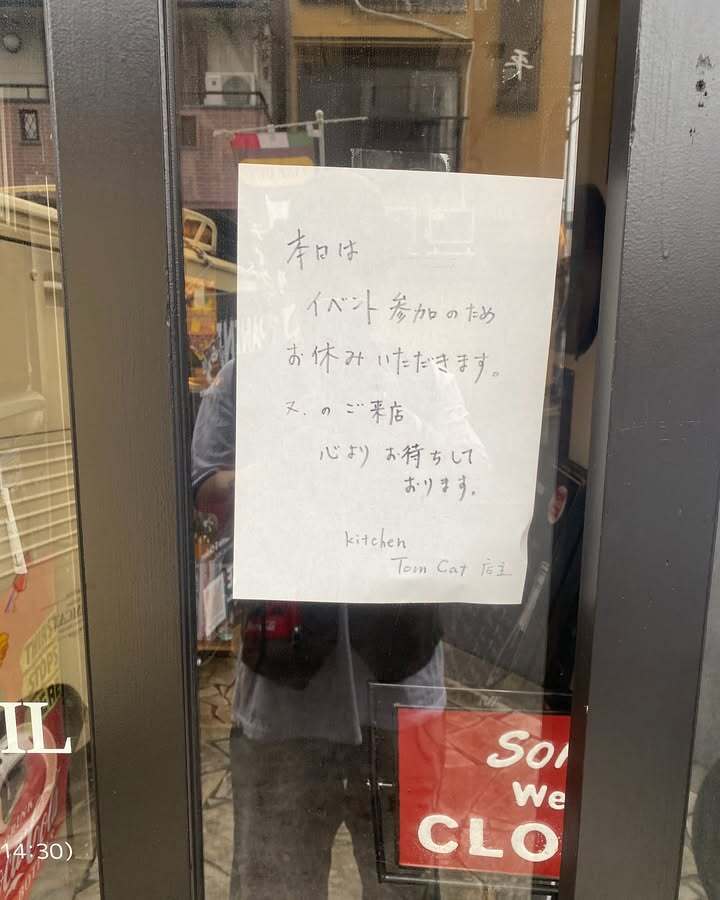 平
本日は
イベント参加のため
お休みいただきます。
又、のご来店
心よりお待ちして
おります。
kitchen
Tom Cat 店主
IL
14:30)
We